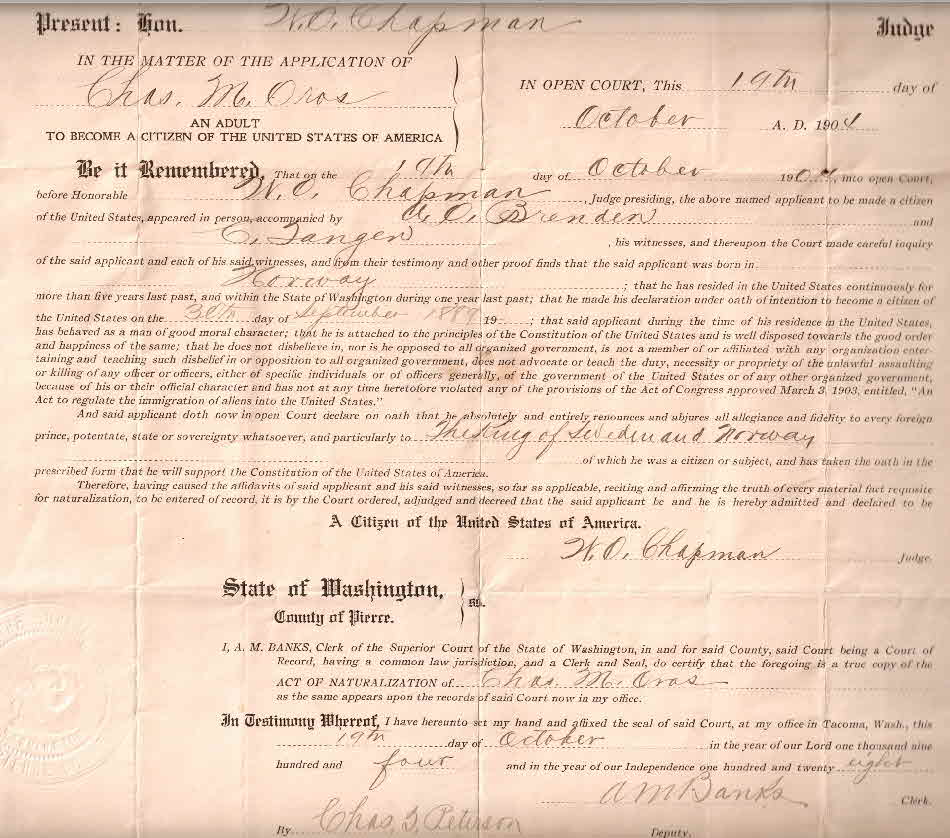 Present: Hon. W. O. Chapman Judge
IN THE MATTER OF THE APPLICATION OF
Chas. M. Oros
AN ADULT
TO BECOME A CITIZEN OF THE UNITED STATES OF AMERICA
IN OPEN COURT, This 19th day of
October A. D. 1904
Be it Remembered, That on the 19th day of October 1904, into open Court,
before Honorable W. O. Chapman, Judge presiding, the above named applicant to be made a citizen
of the United States, appeared in person, accompanied by O. Brenden and
C. Tangen, his witnesses, and thereupon the Court made careful inquiry
of the said applicant and each of his said witnesses, and from their testimony and other proof finds that the said applicant was born in
Norway; that he has resided in the United States continuously for
more than five years last past, and within the State of Washington during one year last past; that he made his declaration under oath of intention to become a citizen of
the United States on the 30th day of September 1889 19 ; that said applicant during the time of his residence in the United States,
has behaved as a man of good moral character; that he is attached to the principles of the Constitution of the United States and is well disposed towards the good order
and happiness of the same; that he does not disbelieve in, nor is he opposed to all organized government, is not a member of or affiliated with any organization enter-
taining and teaching such disbelief in or opposition to all organized government, does not advocate or teach the duty, necessity or propriety of the unlawful assaulting
or killing of any officer or officers, either of specific individuals or of officers generally, of the government of the United States or of any other organized government,
because of his or their official character and has not at any time heretofore violated any of the provisions of the Act of Congress approved March 3, 1903, entitled, "An
Act to regulate the immigration of aliens into the United States."
And said applicant doth now in open Court declare on oath that he absolutely and entirely renounces and abjures all allegiance and fidelity to every foreign
prince, potentate, state or sovereignty whatsoever, and particularly to The King of Sweden and Norway
of which he was a citizen or subject, and has taken the oath in the
prescribed form that he will support the Constitution of the United States of America.
Therefore, having caused the affidavits of said applicant and his said witnesses, so far as applicable, reciting and affirming the truth of every material fact requisite
for naturalization, to be entered of record, it is by the Court ordered, adjudged and decreed that the said applicant be and he is hereby admitted and declared to be
A Citizen of the United States of America.
W. O. Chapman Judge.
State of Washington,
County of Pierce. ss.
I, A. M. BANKS, Clerk of the Superior Court of the State of Washington, in and for said County, said Court being a Court of
Record, having a common law jurisdiction, and a Clerk and Seal, do certify that the foregoing is a true copy of the
ACT OF NATURALIZATION of Chas. M. Oros
as the same appears upon the records of said Court now in my office.
In Testimony Whereof, I have hereunto set my hand and affixed the seal of said Court, at my office in Tacoma, Wash., this
19th day of October in the year of our Lord one thousand nine
hundred and four and in the year of our Independence one hundred and twenty eight
A M Banks Clerk.
By Chas. T. Peterson Deputy.